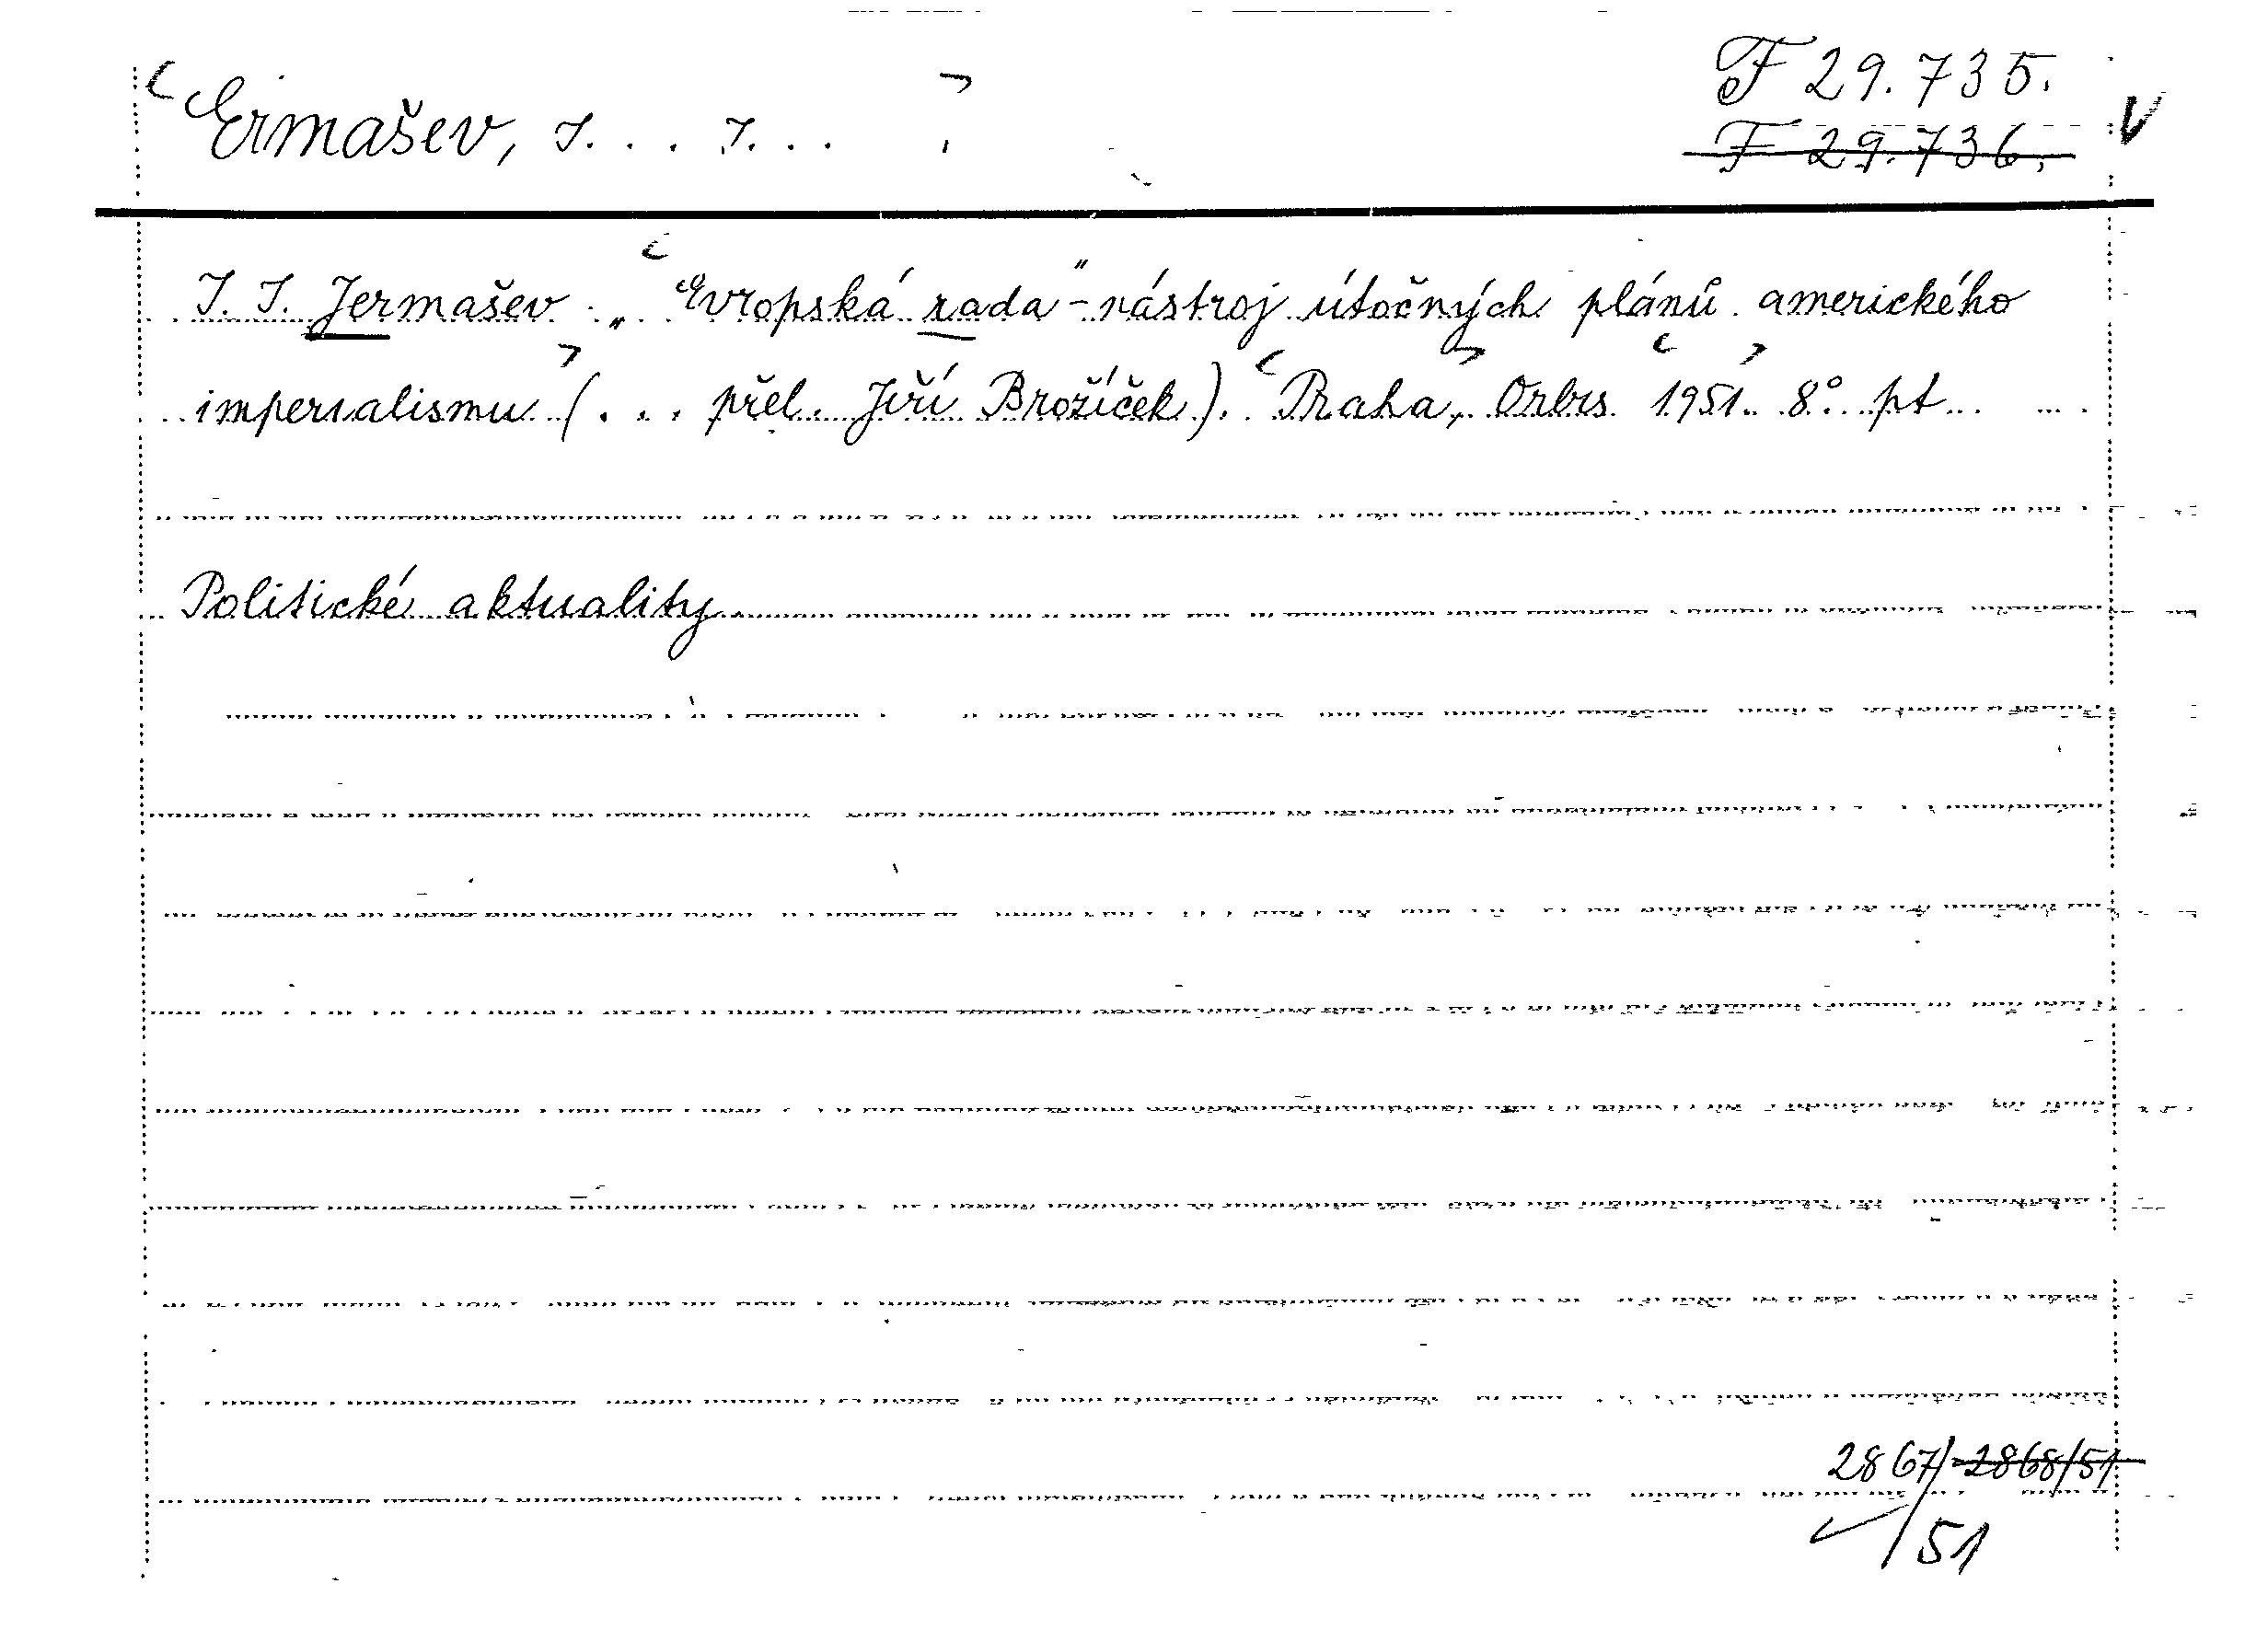 Ermašev, I... I...
F 29.735.
F 29.736.
I. I. Jermašev: „Evropská rada" - nástroj útočných plánů amerického
imperialismu (... přel. Jiří Brožíček). Praha, Orbis 1951. 8° pt...
Politické aktuality
2867/2868/51
/51